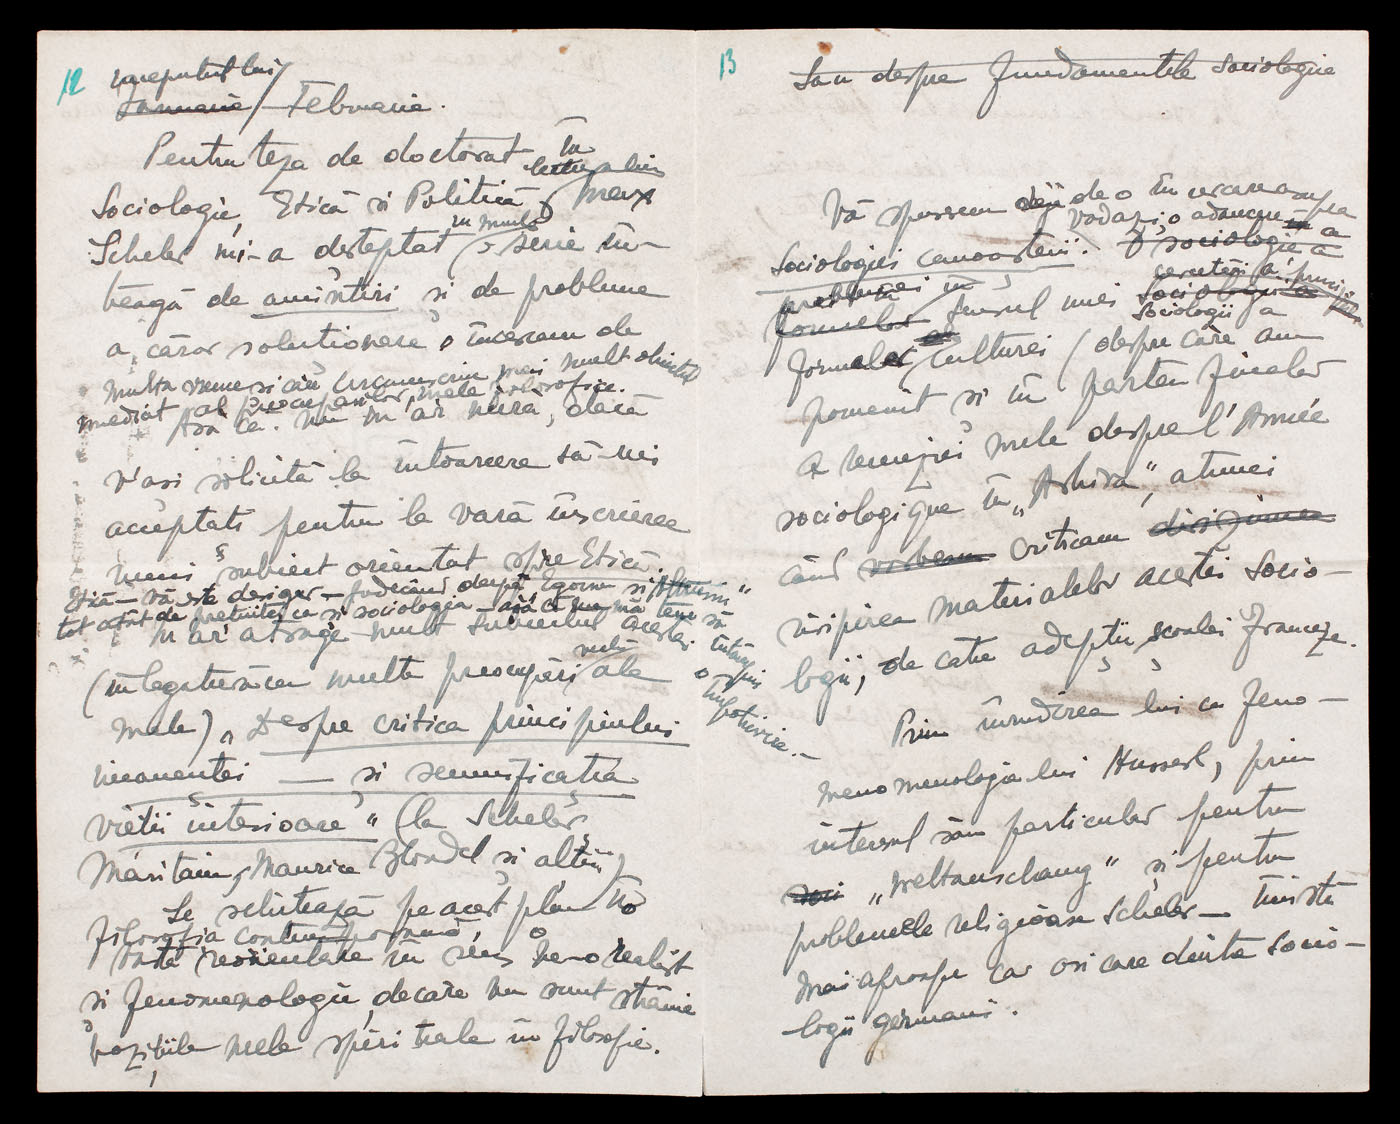 12
începutul lui
Ianuarie / Februarie.
Pentru teza de doctorat în
lectura lui
Sociologie, Etică și Politică, Max
în multe
Scheler mi-a deșteptat o serie în-
treagă de amintiri și de probleme
a căror soluționare o încercam de
multă vreme și circumscriu mai mult obiectul
mediat al preocupărilor mele filosofice.
Așa că nu m'ar mira, dacă
v'ași solicita la întoarcere să-mi
acceptați pentru la vară înscrierea
unui subiect orientat spre Etică.
Etică – vă este desigur – judecând după „Egoism și Altruism"
tot atât de prețuită ca și sociologia – așa că nu mă tem să
întâmpin
o
împotrivire. –
M'ar atrage mult subiectul acesta
(în legătură cu multe preocupări vechi ale
mele) „Despre critica principiului
imanenței — și semnificația
vieții interioare" (la Scheler,
Maritain, Maurice Blondel și alții)
Se schițează pe acest plan în
filosofia contemporană, o
vastă reorientare în sens neo-realist
și fenomenologic, de care nu sunt străine
pozițiile mele spirituale în filosofie.
13
Sau despre fundamentele sociologiei
Vă spuneam de o încercare asupra
Sociologiei cunoașterii. Vădază o adâncire a
O sociologie a
problemei în
formelor sensul unei cercetări a
Sociologii a
formelor culturei (despre care am
pomenit și în partea finală
a recenziei mele despre l'Année
sociologique în „Arhiva", atunci
când vorbeam criticam
risipirea materialelor acestei socio-
logii, de către adepții școalei franceze.
Prin înrudirea lui cu feno-
menomenologia lui Husserl, prin
interesul său particular pentru
„Weltanschaung" și pentru
problemele religioase Scheler – îmi stă
mai aproape ca ori care dintre socio-
logii germani.